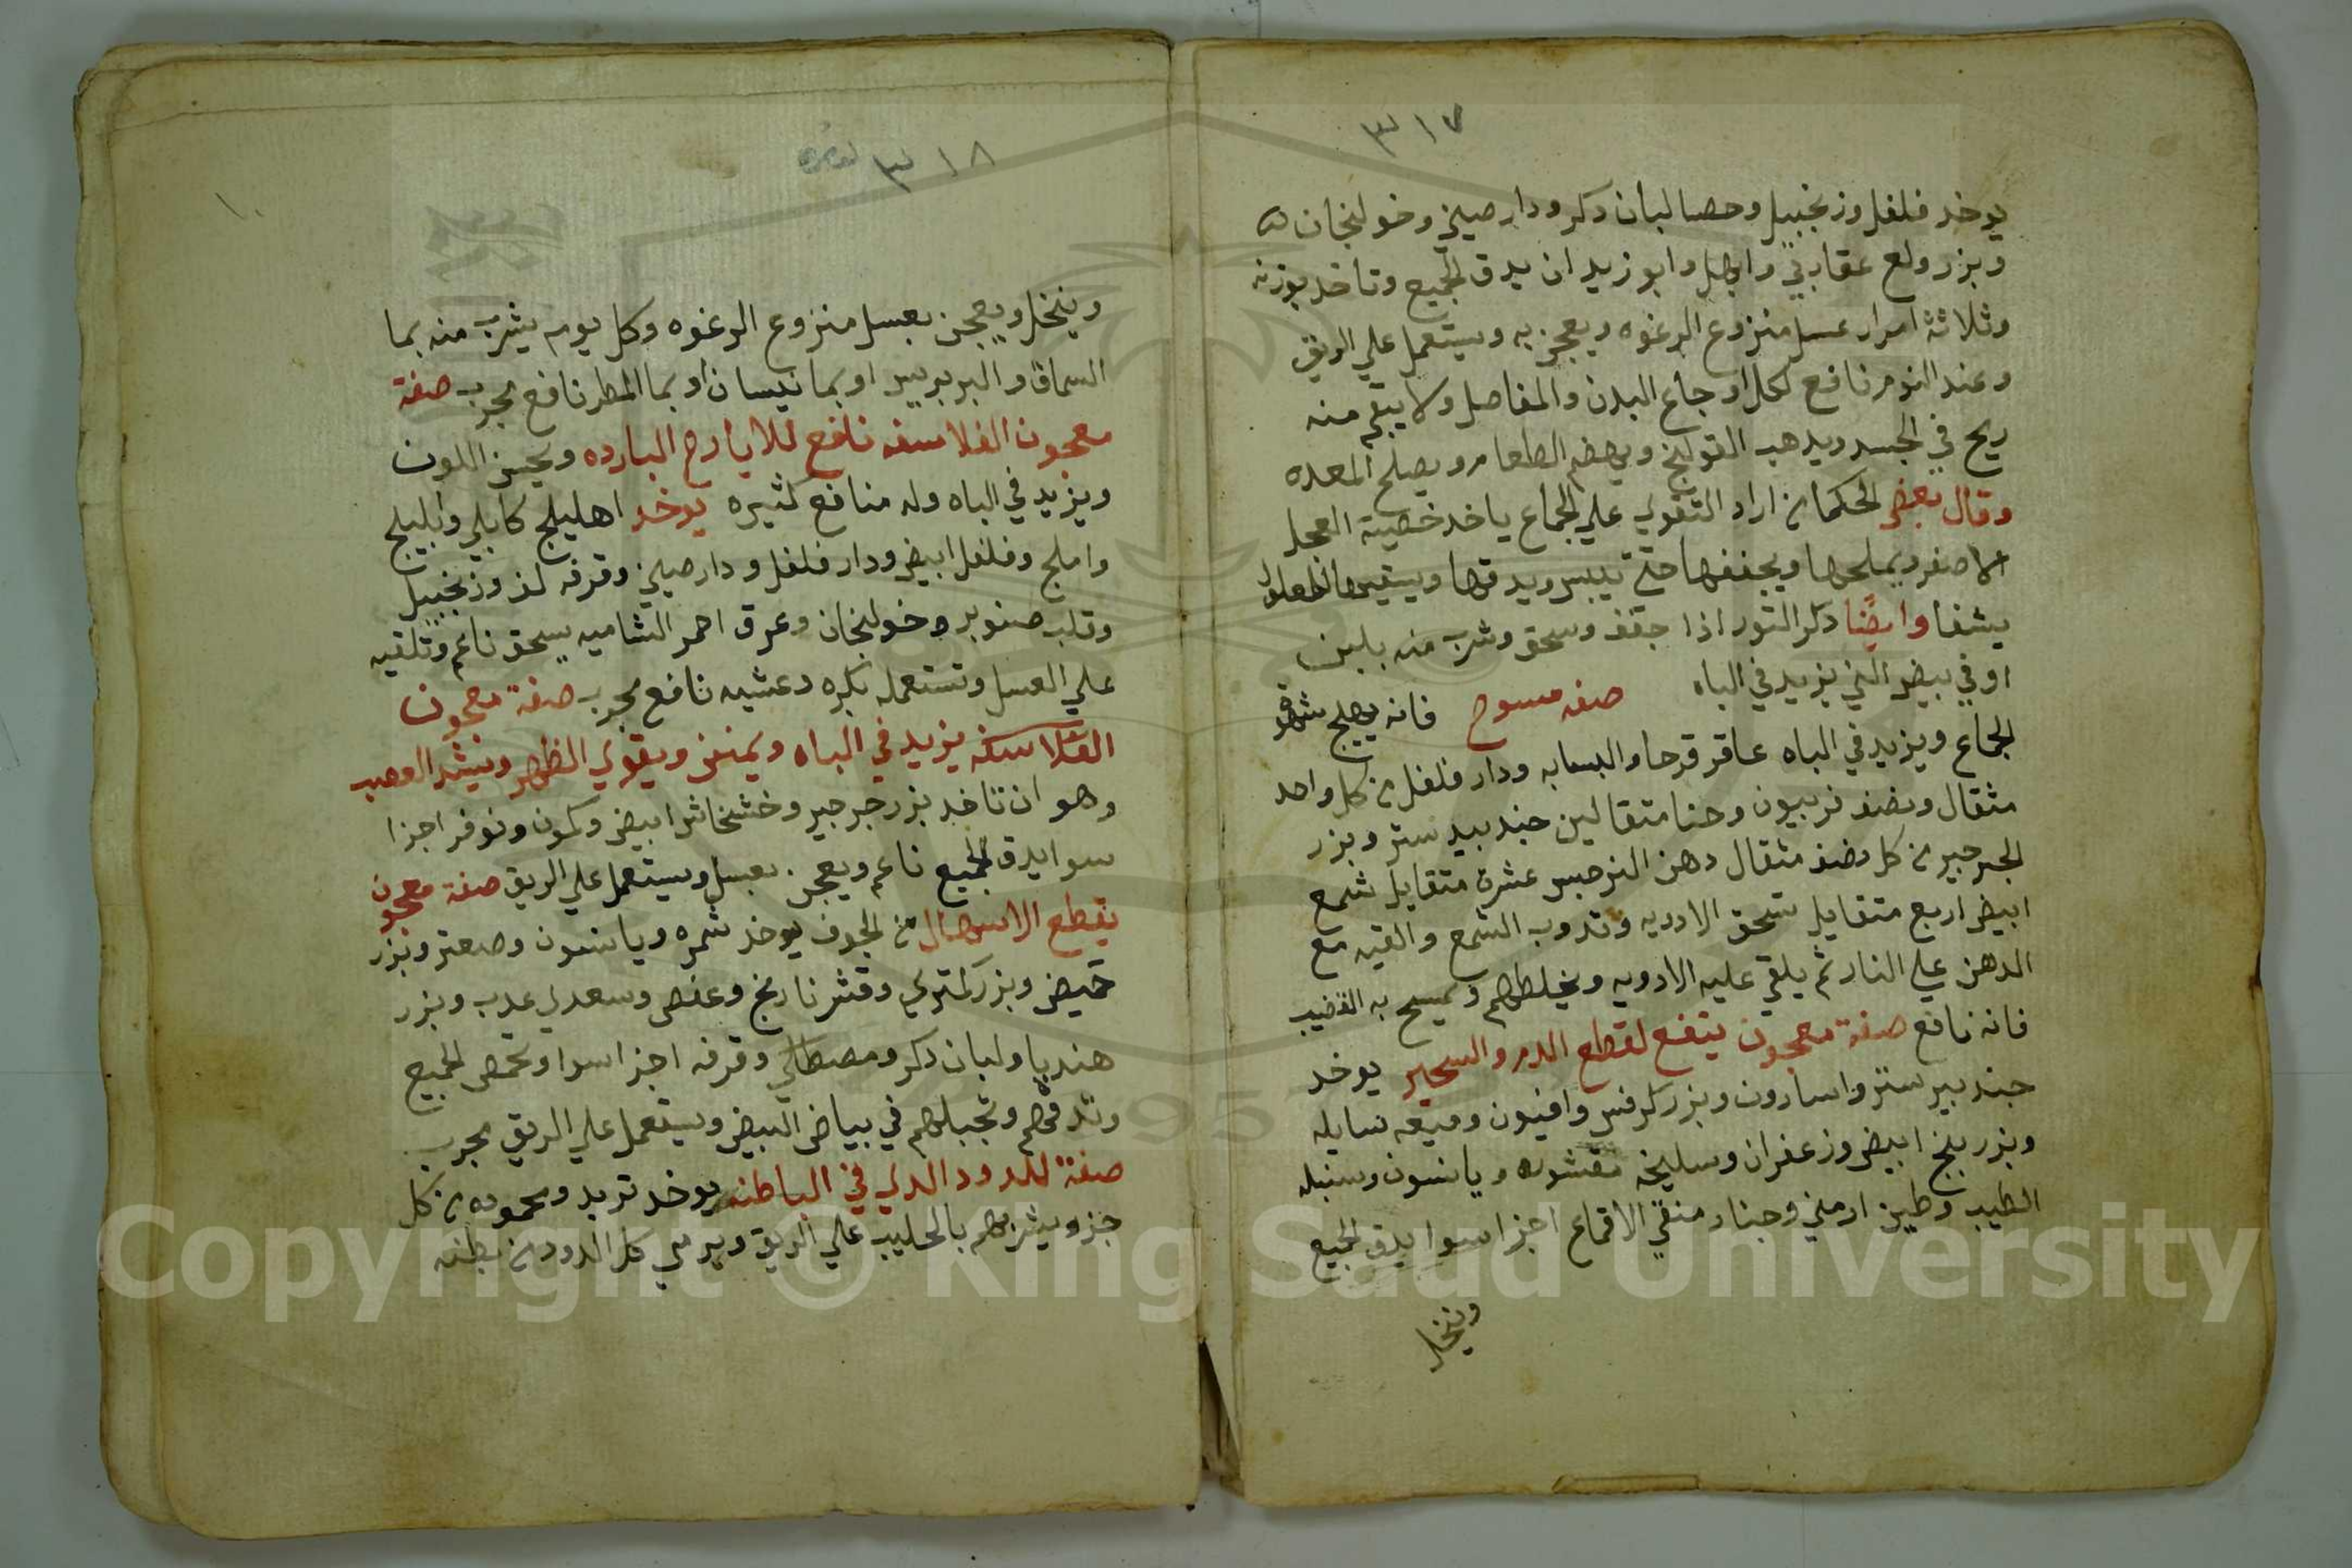 ٣١٧
يوخد فلفل وزنجبيل وحصا لبان دكر ودار صيني وخولنجان
وبزر ولع عقاربي وابهل وابو زيدان يدق الجميع وتاخد بوزنه
وثلاثة امرار عسل منزوع الرغوه ويعجن به ويستعمل علي الريق
وعند النوم نافع لكل اوجاع البدن والمفاصل ولا يبقي منه
ريح في الجسد ويدهب القولنج ويهضم الطعام ويصلح المعده
وقال بعض الحكما من اراد التقوي علي الجماع ياخد خصيتة العجل
الاصفر ويملحها ويجففها حتي تيبس ويدقها ويسقيها
يشفا وايضًا دكر التور اذا جفف وسحق وشرب منه بلبن
او في بيض الني يزيد في الباه صفه مسوح فانه يهيج شهوة
الجماع ويزيد في الباه عاقر قرحا والبسبابه ودار فلفل من كل واحد
مثقال ونصف فربيون وحنا متقالين جندبيدستر وبزر
الجرجير من كل نصف مثقال دهن النرجس عشرة متقايل شمع
ابيض اربع متقايل تسحق الادويه وتدوب الشمع والقيه مع
الدهن علي النار ثم يلقي عليه الادويه ويخلطهم ويمسح به القضيب
فانه نافع صفة معجون ينفع لقطع الدم والسحير يوخد
جندبيرستر واسارون وبزر كرفس وافيون وميعه سايله
وبزر بنج ابيض وزعفران وسليخه مقشوره ويانسون وسنبله
الطيب وطين ارمني وجنار منقي الاقماع اجزا سوا يدق الجميع
وينخل
٣١٨
١٠
وينخل ويعجن بعسل منزوع الرغوه وكل يوم يشرب منه بما
السماق والبربريس او بما نيسان او بما المطر نافع مجرب صفة
معجون الفلاسفه نافع للايارح البارده ويحسن اللون
ويزيد في الباه وله منافع كثيره يوخد اهليلج كابلي وابليلج
واملج وفلفل ابيض ودار فلفل ودار صيني وقرفه لف وزنجبيل
وقلب صنوبر وخولنجان وعرق احمر الشاميه يسحق ناعم وتلقيه
علي العسل وتستعمله بكره وعشيه نافع مجرب صفة معجون
الفلاسفه يزيد في الباه ويمنز ويقوي الظهر ويشد العصب
وهو ان تاخد بزر جرجير وخشخاش ابيض وكمون ونوفر اجزا
سوا يدق الجميع ناعم ويعجن بعسل ويستعمل علي الريق صفة معجون
يقطع الاسهال من الجوف يوخد شمره ويانسون وصعتر وبزر
حميض وبزر كمتري وقشر نارنج وعفص وسعدي عدب وبزر
هنديبا ولبان دكر ومصطكي وقرفه اجزا سوا وتحمص الجميع
وتدقهم وتجبلهم في بياض البيض ويستعمل علي الريق مجرب
صفة للدود الدي في الباطنه يوخد تربد ومحموده من كل
جزو يشربهم بالحليب علي الريق ويرمي كل الدود من بطنه
Copyright © King Saud University